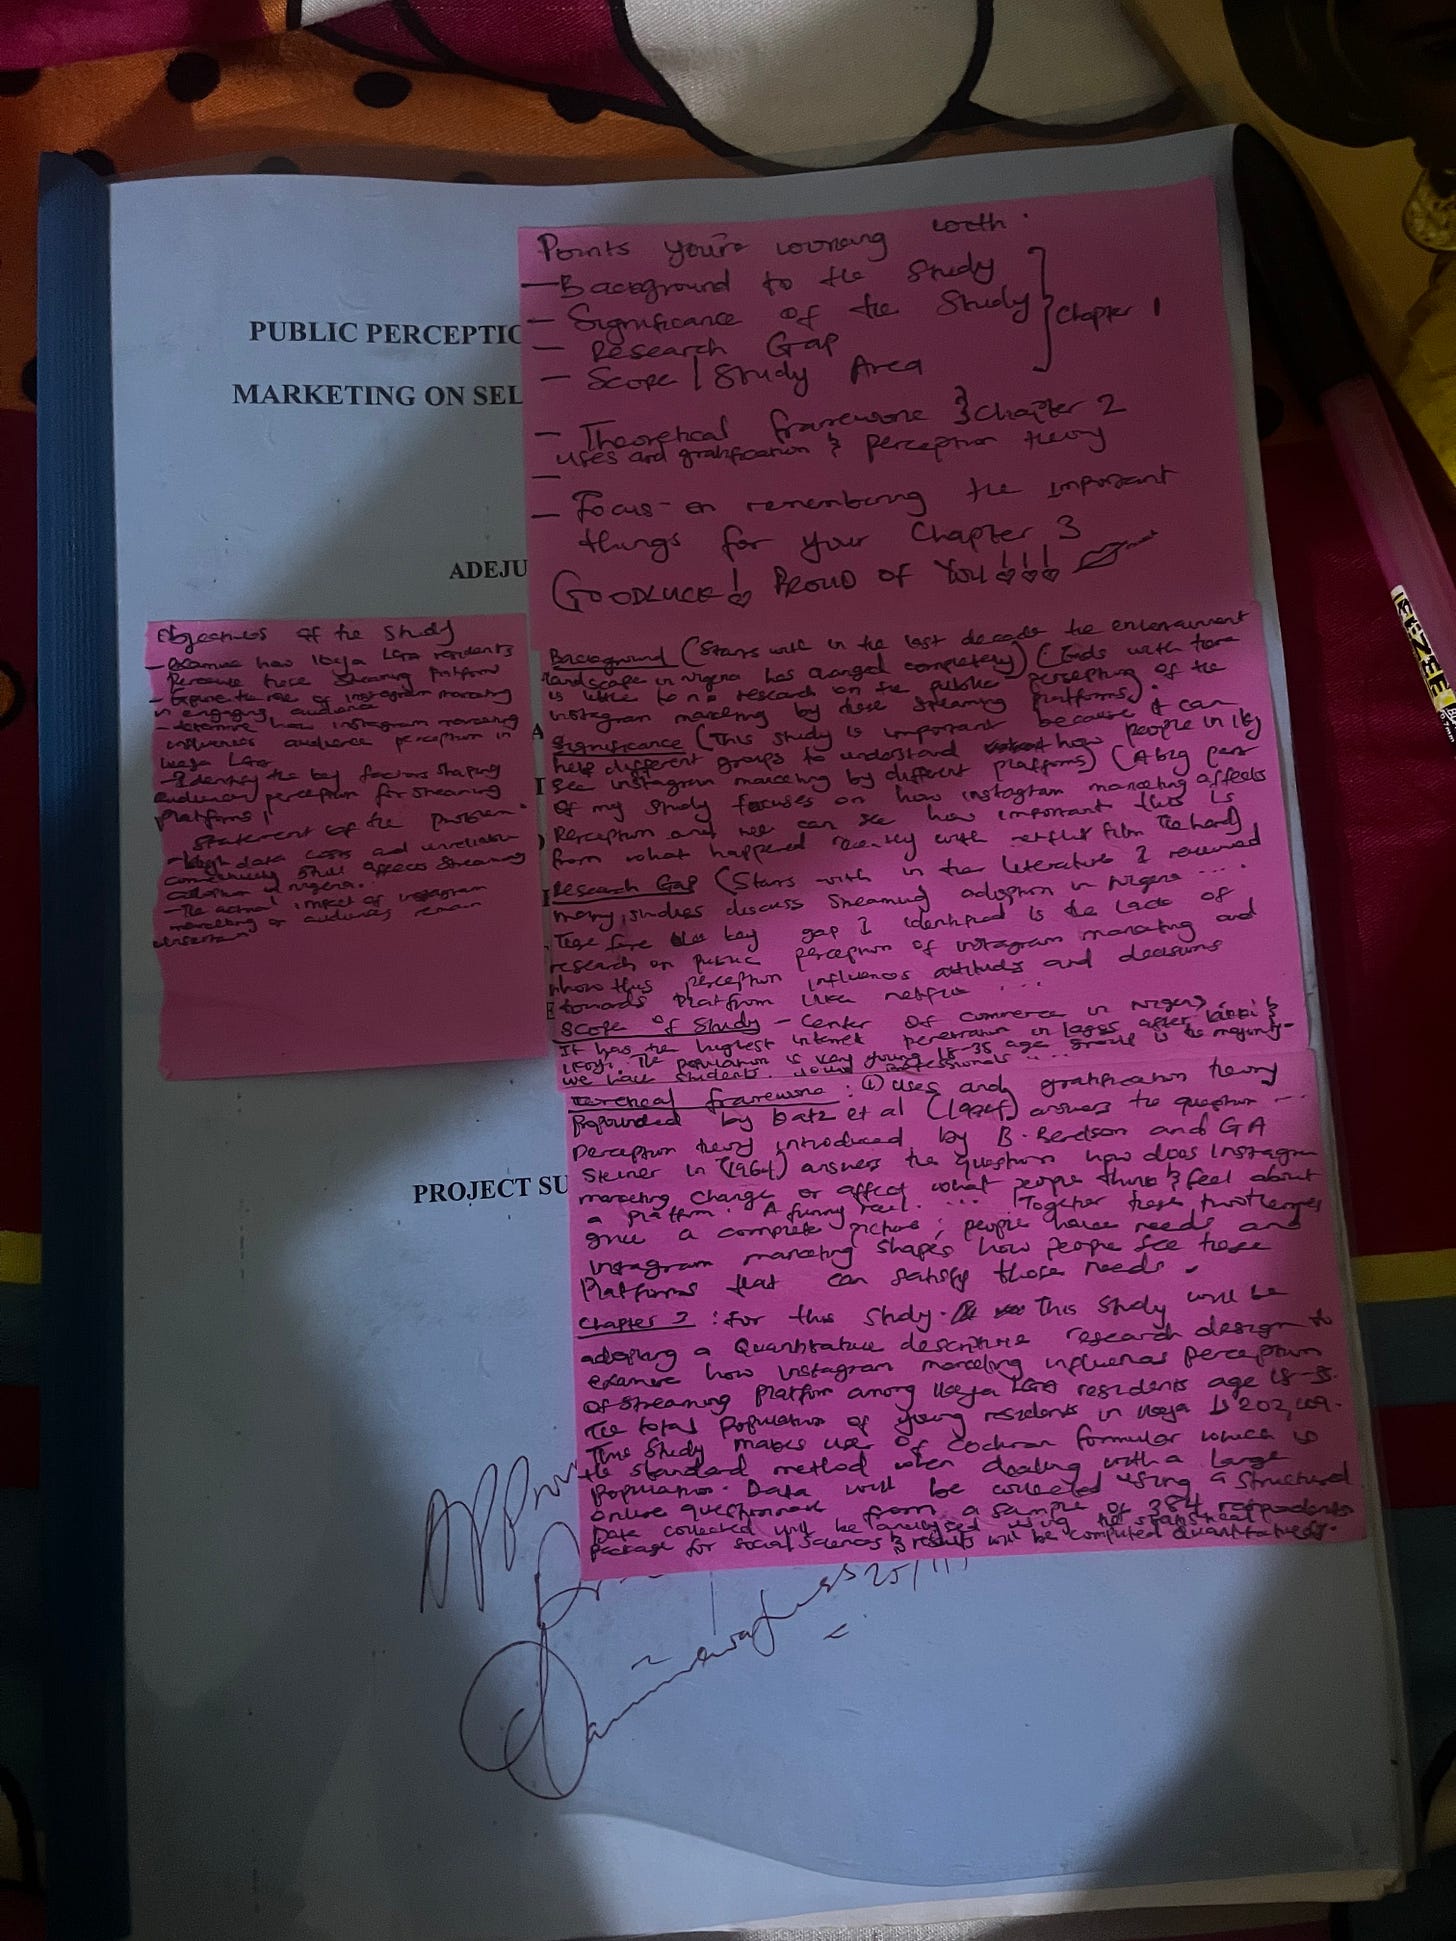 PUBLIC PERCEPTIO
MARKETING ON SEL
ADEJU
PROJECT SU
Points you're working with.
- Background to the Study
- Significance of the Study
- Research Gap
- Scope | Study Area
} Chapter 1
- Theoretical framework } Chapter 2
uses and gratification & perception theory
-
- Focus on remembering the important
things for your Chapter 3
GOODLUCK! PROUD OF YOU!!!
Objectives of the study
- examine how Ikeja LGA residents
Perceive these Streaming Platform
- Explore the role of instagram marketing
in engaging audience
- determine how instagram marketing
influences audience perception in
Ikeja LGA
- Identify the key factors shaping
audience perception for streaming
platforms
Statement of the problem
- High data costs and unreliable
connectivity still affects streaming
adoption in nigeria.
- The actual impact of instagram
marketing on audiences remain
uncertain
Background (Starts with in the last decade the entertainment
landscape in nigeria has changed completely) (Ends with there
is little to no research on the public perception of the
instagram marketing by these streaming platforms).
Significance (This study is important because it can
help different groups to understand how people in Ikj
see instagram marketing by different platforms) (A big part
of my study focuses on how instagram marketing affects
Perception and we can see how important this is
from what happened recently with netflix film The herd)
Research Gap (Starts with in the literature I reviewed
many studies discuss Streaming adoption in nigeria ....
Therefore the key gap I identified is the lack of
research on public perception of instagram marketing and
how this perception influences attitudes and decisions
towards platform like netflix ...
Scope of Study - Center of commerce in nigeria,
It has the highest internet penetration in lagos after &
The population is very young 18-35 age group is the majority -
we have students, young professionals ...
Theoretical framework: ① Uses and gratification theory
Propounded by Datz et al (1974) answers the question ...
Perception theory introduced by B. Berelson and GA
Steiner in (1964) answers the question how does Instagram
marketing change or affect what people think & feel about
a platform. A funny reel. ... Together these two theories
give a complete picture; people have needs and
instagram marketing shapes how people see these
Platforms that can satisfy those needs.
Chapter 3: For this study. This study will be
adopting a Quantitative descriptive research design to
examine how instagram marketing influences perception
of streaming platform among Ikeja LGA residents age 18-35.
The total population of young residents in Ikeja is 202,
This study makes use of cochran formular which is
the standard method when dealing with a large
population. Data will be collected using a structured
online questionnaire from a sample of 384 respondents
Data collected will be analysed using the statistical
package for social sciences & results will be computed quantitatively.